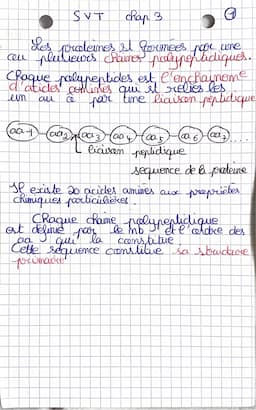 SVT chap 3 1
Les protéines st formées par une
ou plusieurs chaines polypeptidiques.
Chaque polypeptides est l'enchaynem
d'acides aminés qui st reliés les
un au à par une liaison peptidique
aa1 aa2 aa3 aa4 aa5 aa6 aa7
liaison peptidique
sequence de la protéine
Il existe 20 acides aminés aux propriétés
chimiques particulières.
Chaque chaine polypeptidique
est définie par le nb et l'ordre des
aa qui la constitue.
Cette séquence constitue sa structure
primaire